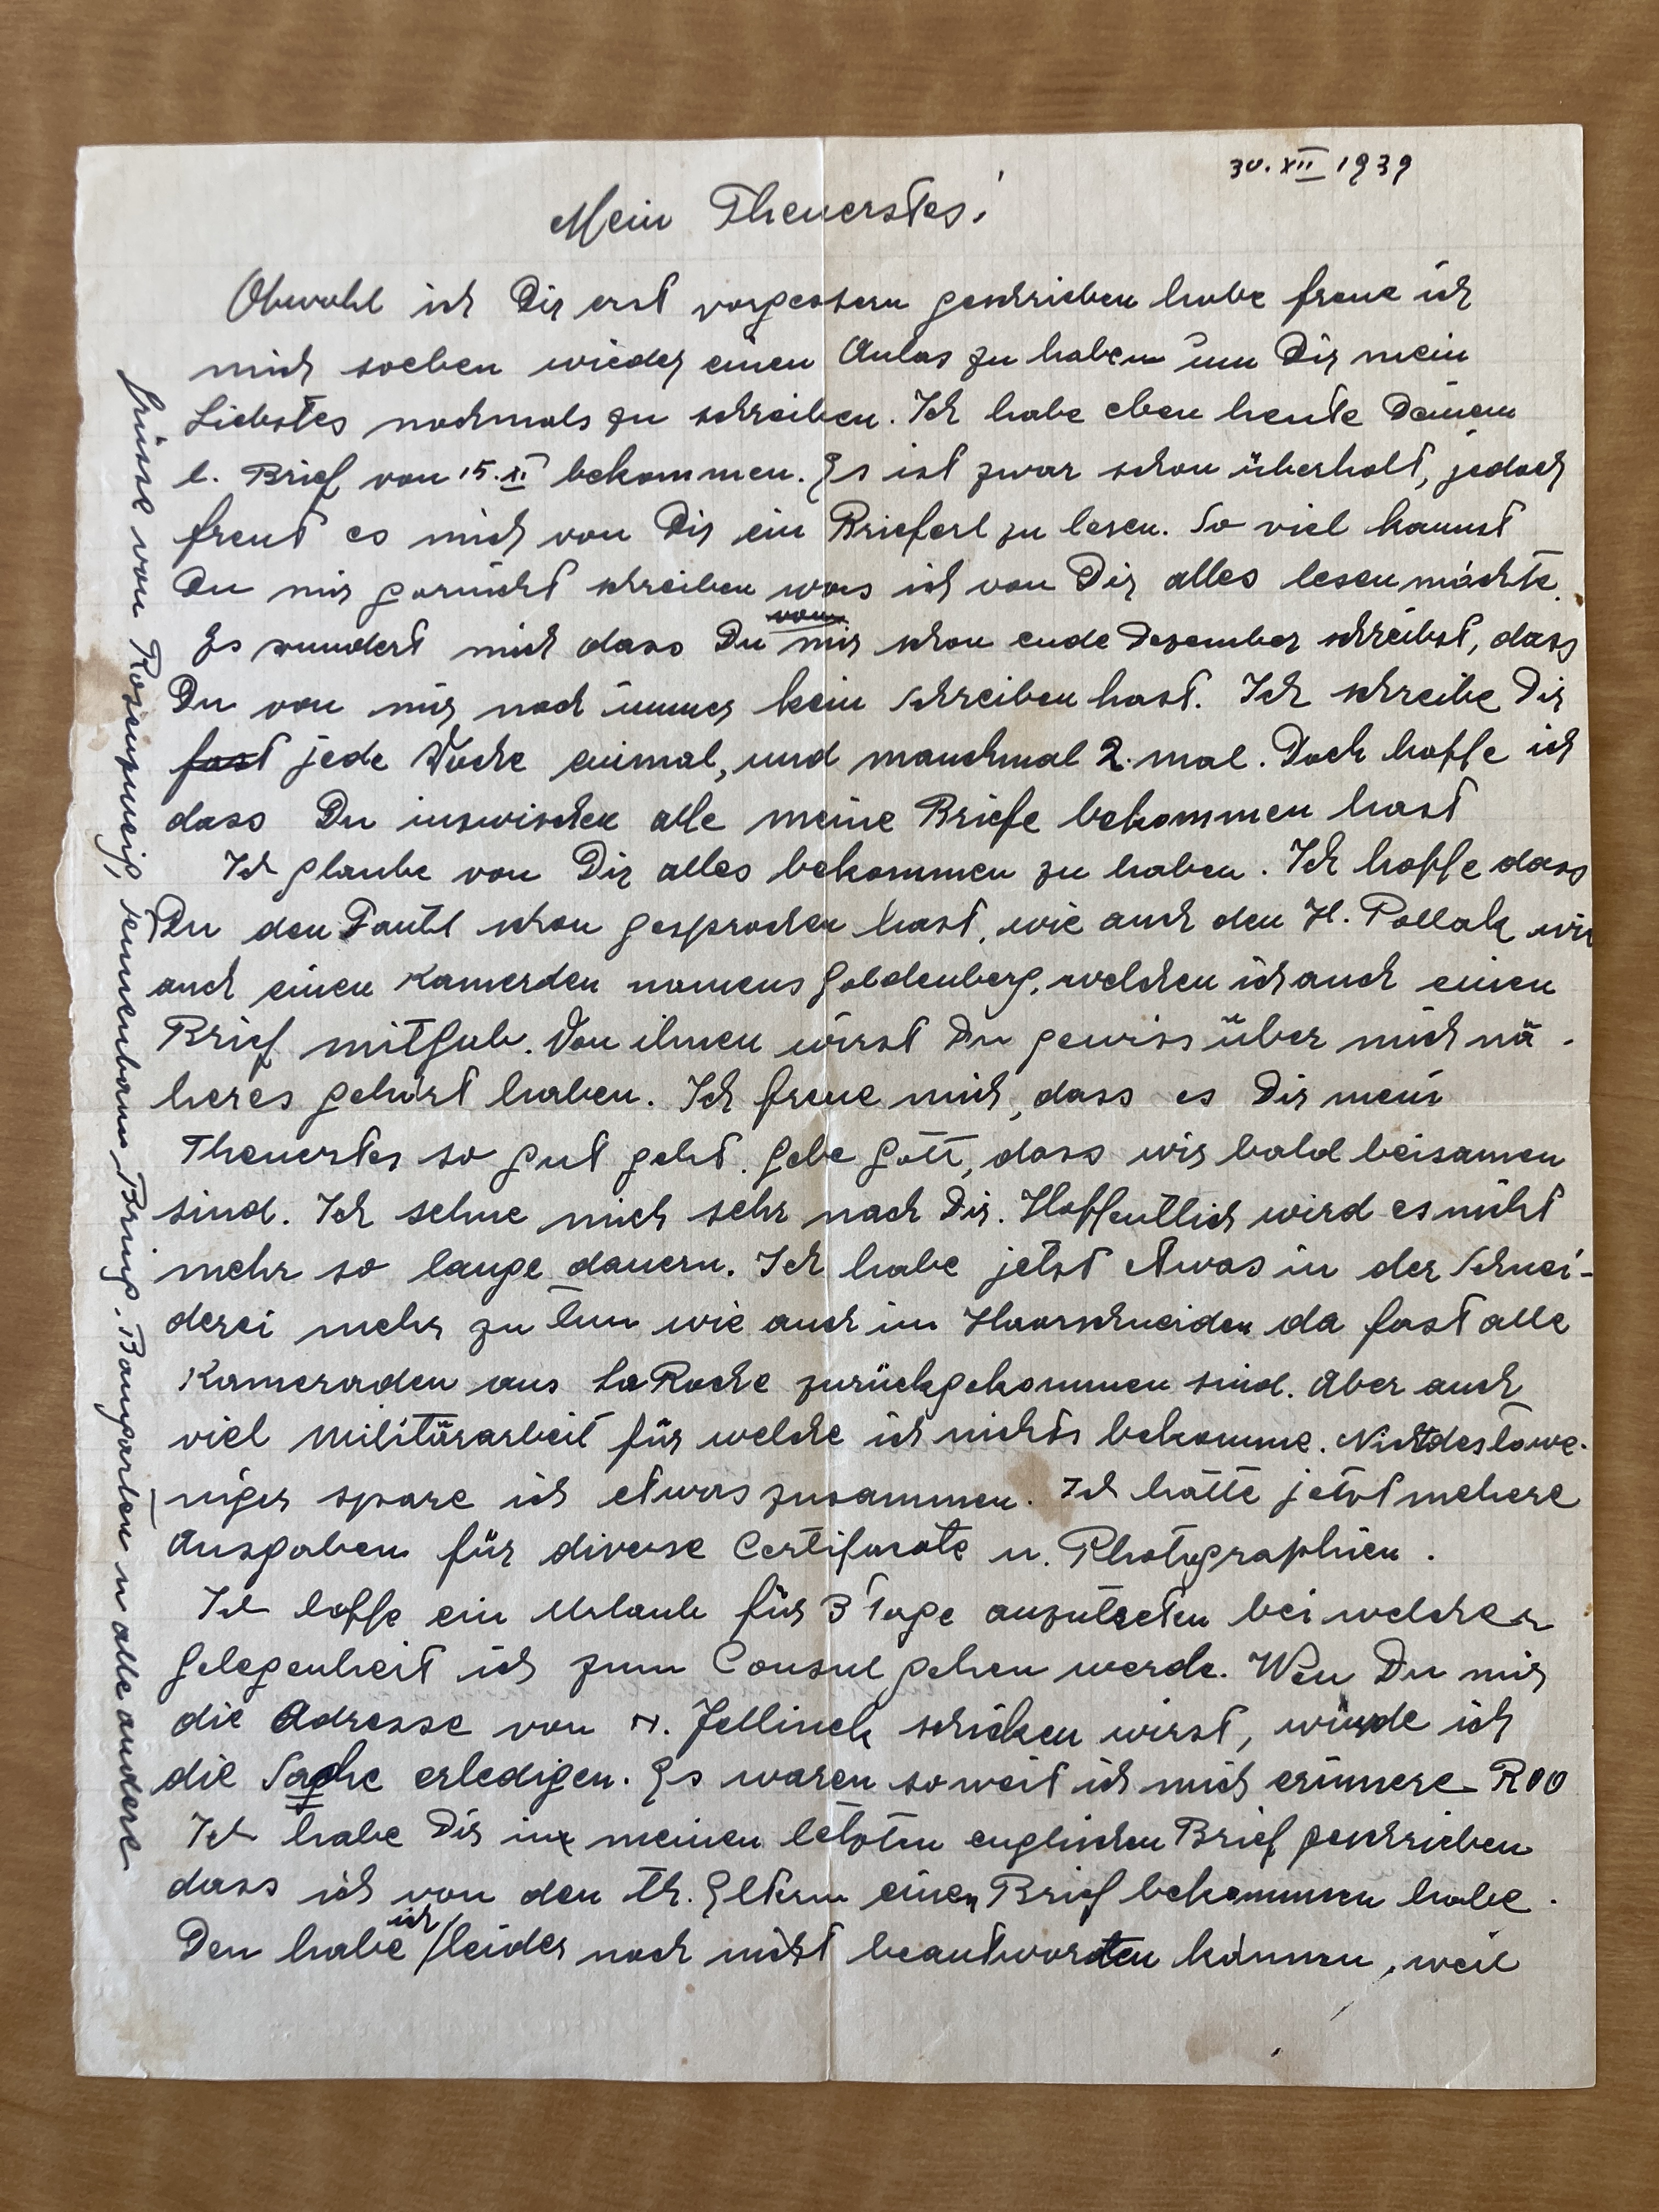 30. XII 1939
Mein Theuerstes!
Obwohl ich Dir erst vorgestern geschrieben habe freue ich
mich soeben wieder einen Anlas zu haben um Dir mein
Liebstes nochmals zu schreiben. Ich habe eben heute Deinem
l. Brief von 15. XI bekommen. Es ist zwar schon überholt, jedoch
freut es mich von Dir ein Brieferl zu lesen. So viel kannst
Du mir garnicht schreiben was ich von Dir alles lesen möchte.
Es wundert mich dass Du mir schon ende Dezember schreibst, dass
Du von mir noch immer kein schreiben hast. Ich schreibe Dir
fast jede Woche einmal, und manchmal 2. mal. Doch hoffe ich
dass Du inzwischen alle meine Briefe bekommen hast
Ich glaube von Dir alles bekommen zu haben. Ich hoffe dass
Du den schon gesprochen hast, wie auch den H. Pollak wie
auch einen Kamerden namens Goldenberg, welchen ich auch einen
Brief mitgab. Von ihnen wirst Du gewiss über mich nä-
heres gehört haben. Ich freue mich, dass es Dir mein
Theuerstes so gut geht. Gebe Gott, dass wir bald beisamen
sind. Ich sehne mich sehr nach Dir. Hoffentlich wird es nicht
mehr so lange dauern. Ich habe jetzt etwas in der Schnei-
derei mehr zu tun wie auch im Haarschneiden da fast alle
Kameraden aus La Roche zurückgekommen sind. Aber auch
viel Militärarbeit für welche ich nichts bekomme. Nichtdestowe-
niger spare ich etwas zusammen. Ich hatte jetzt mehere
Ausgaben für diverse Certificate u. Photographien.
Ich hoffe ein Urlaub für 3 Tage anzutreten bei welcher
Gelegenheit ich zum Consul gehen werde. Wen Du mir
die Adresse von H. Jellinek schicken wirst, würde ich
die Sache erledigen. Es waren soweit ich mich erinnere R00
Ich habe Dir in meinen letzten englischen Brief geschrieben
dass ich von den th. Eltern einen Brief bekommen habe.
Den habe ich leider noch nicht beantworten können, weil
Grüsse von Rosenzweig, Tennenbaum, Brüg. Baumgarten u alle andere